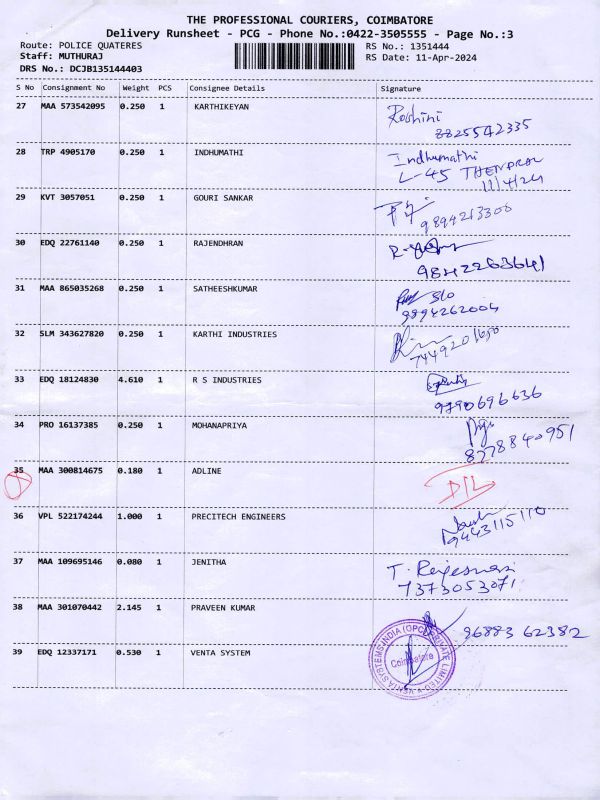 THE PROFESSIONAL COURIERS, COIMBATORE
Delivery Runsheet - PCG - Phone No.:0422-3505555 - Page No.:3
Route: POLICE QUATERES RS No.: 1351444
Staff: MUTHURAJ RS Date: 11-Apr-2024
DRS No.: DCJB135144403
S No Consignment No Weight PCS Consignee Details Signature
27 MAA 573542095 0.250 1 KARTHIKEYAN Roshini
8825542335
28 TRP 4905170 0.250 1 INDHUMATHI Indhumathi
L-45 THENDRAL
11/4/24
29 KVT 3057051 0.250 1 GOURI SANKAR
9894213300
30 EDQ 22761140 0.250 1 RAJENDHRAN
9842263641
31 MAA 865035268 0.250 1 SATHEESHKUMAR S/O
9894262004
32 SLM 343627820 0.250 1 KARTHI INDUSTRIES
33 EDQ 18124830 4.610 1 R S INDUSTRIES
9790696636
34 PRO 16137385 0.250 1 MOHANAPRIYA
8778840951
35 MAA 300814675 0.180 1 ADLINE D/L
36 VPL 522174244 1.000 1 PRECITECH ENGINEERS
9443115110
37 MAA 109695146 0.080 1 JENITHA T. Rajeswari
7373053071
38 MAA 301070442 2.145 1 PRAVEEN KUMAR 96883 62382
39 EDQ 12337171 0.530 1 VENTA SYSTEM
VENTA SYSTEMS INDIA (OPC) PRIVATE LIMITED
Coimbatore